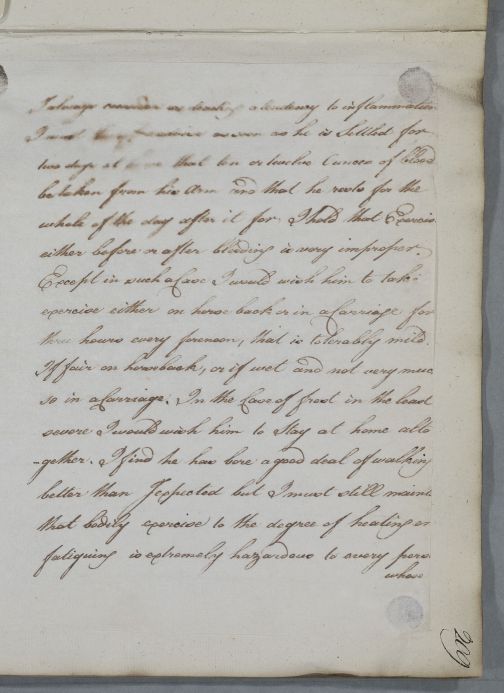 I always consider as tendency to inflammation
I must therefore as soon as he is Settled for
two days at home that ten or twelve Ounces of blood
be taken from his Arm and that he rests for the
whole of the day after it for I hold that Exercise
either before or after bleeding is very improper.
Except in such a Case I would wish him to take
exercise either on horse back or in a Carriage for
three hours every forenoon, that is tolerably mild.
If fair on horseback, or if wet and not very muc
so in a Carriage. In the Case of frost in the least
severe I would wish him to Stay at home alto
-gether. I find he has bore a good deal of walking
better than I expected but I must still maint
that bodily exercise to the degree of heating or
fatiguing is extremely hazardous to every pers
whose